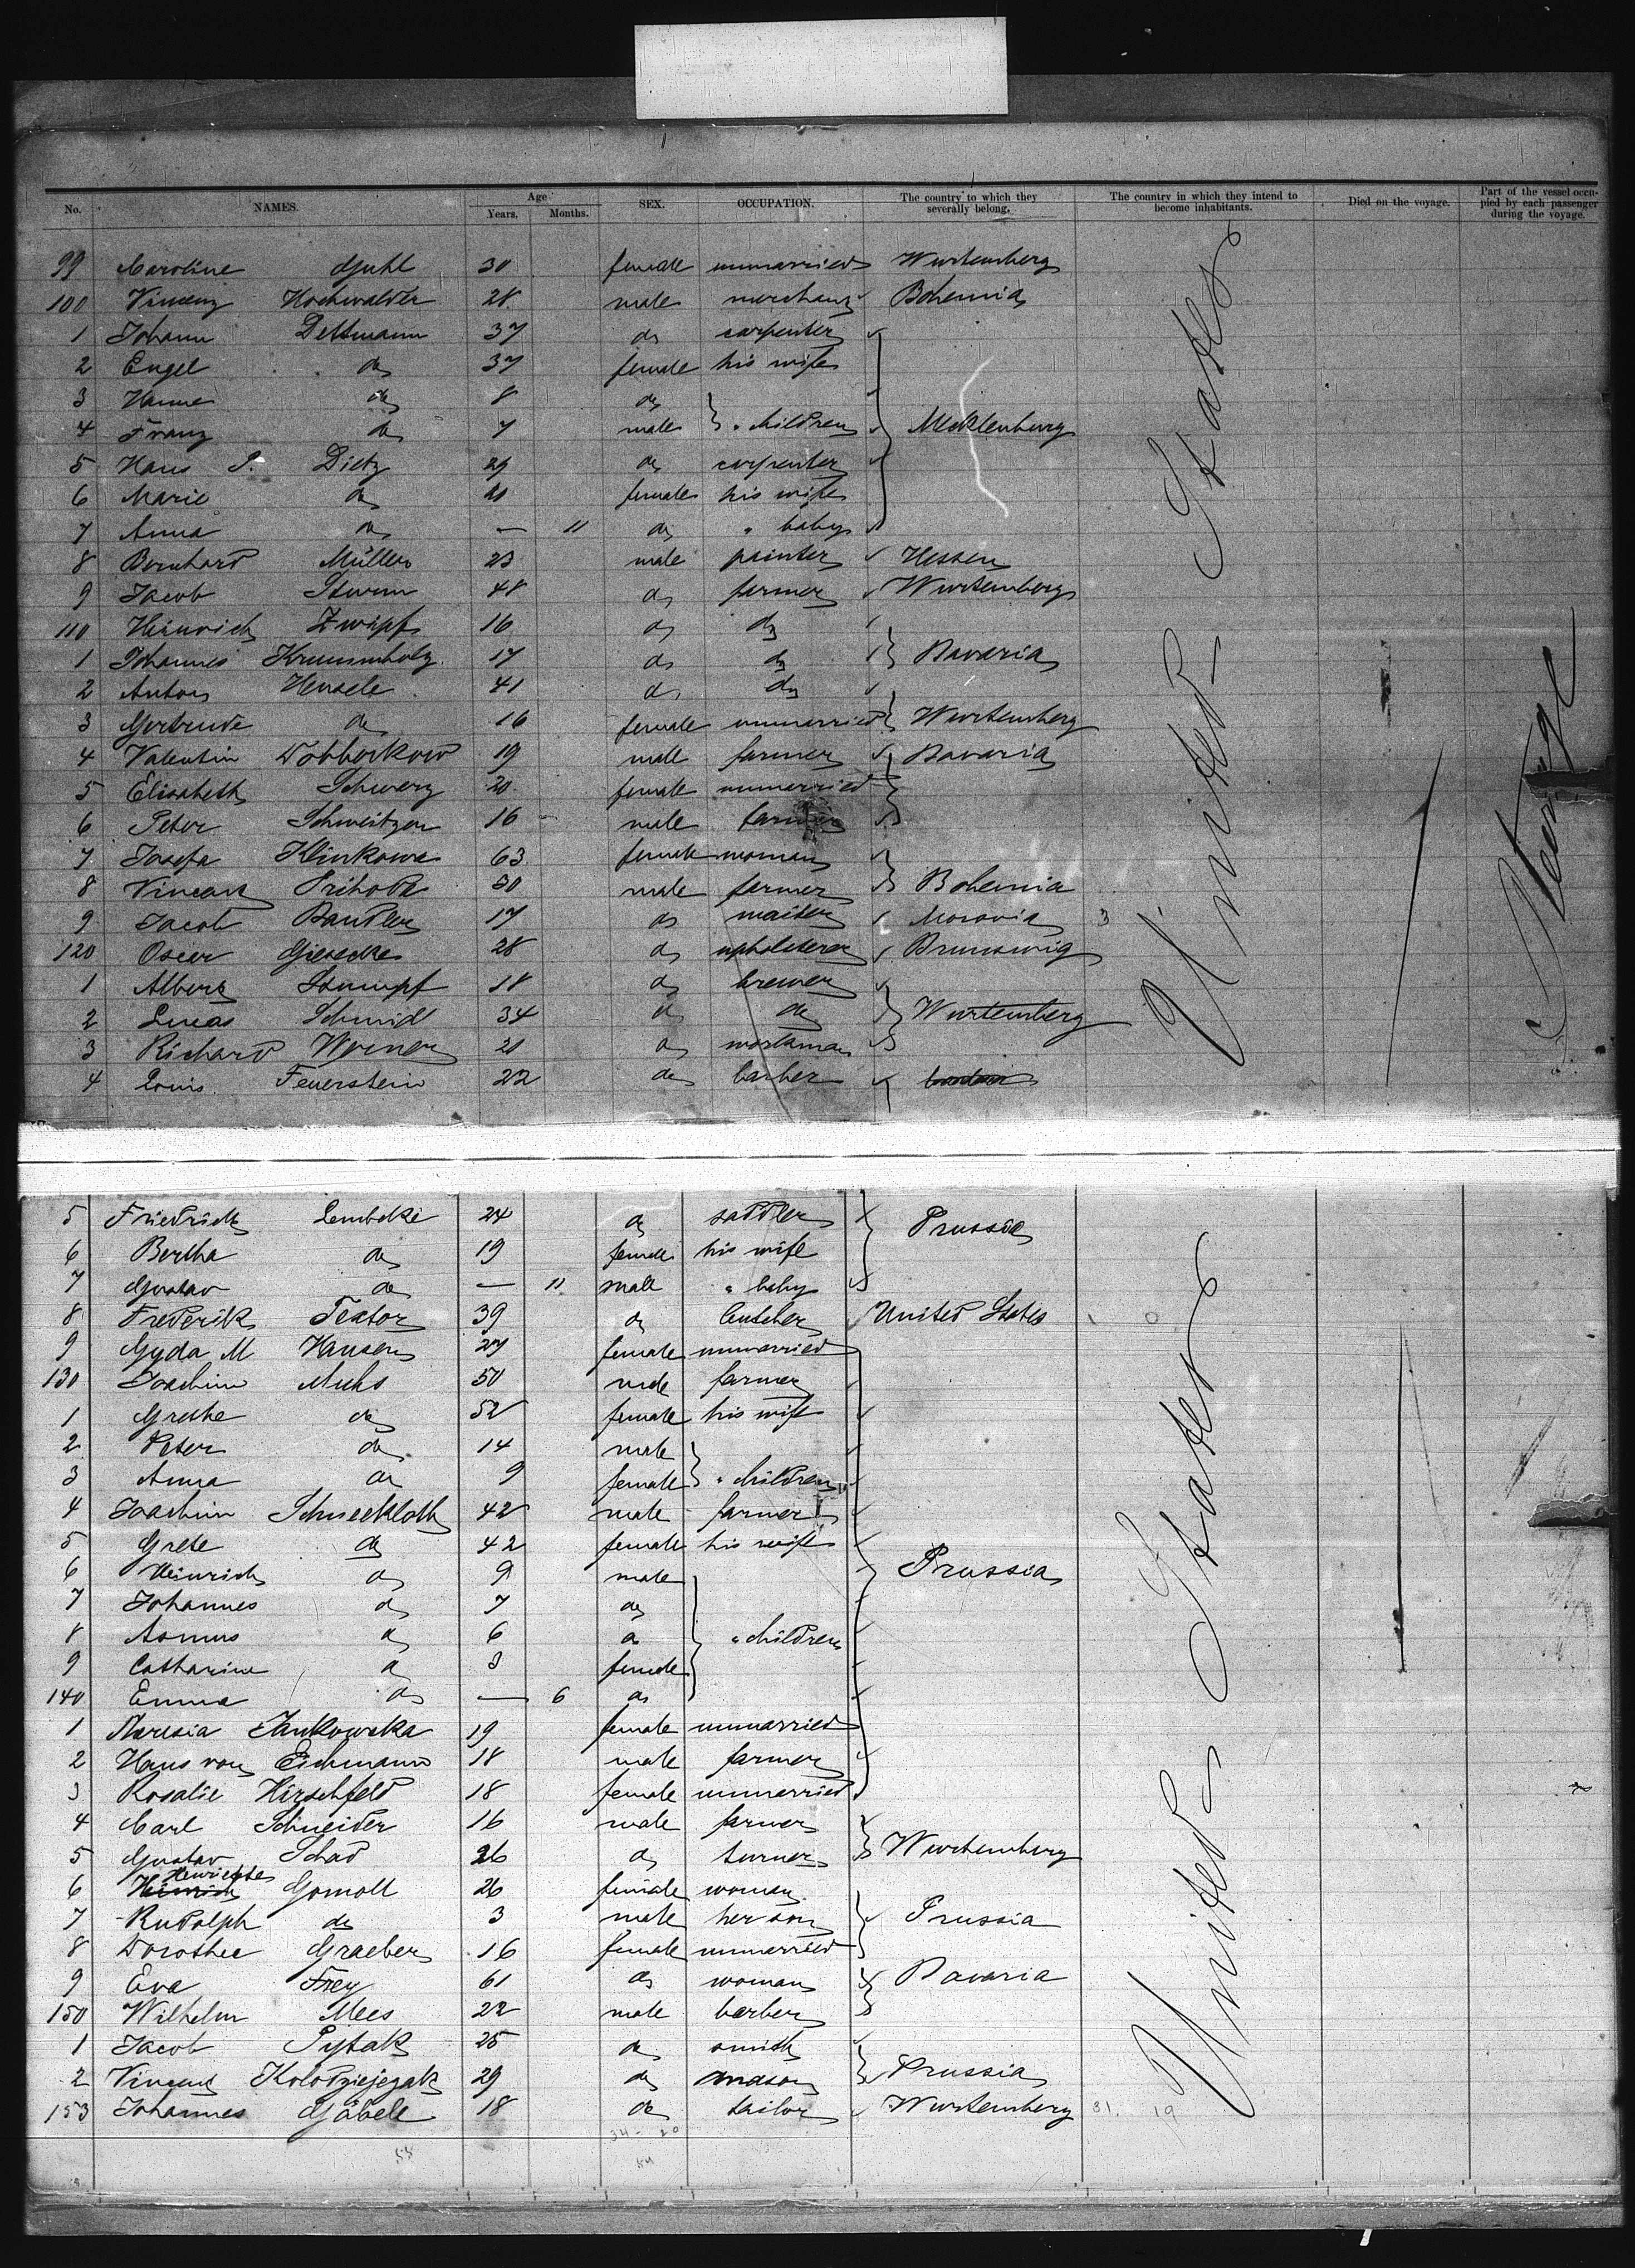 No. NAMES. Age Years. Months. SEX. OCCUPATION. The country to which they severally belong. The country in which they intend to become inhabitants. Died on the voyage. Part of the vessel occupied by each passenger during the voyage.
99 Caroline Guhl 30 female unmarried Wurtemberg
100 Vincenz Hochwalder 28 male merchant Bohemia
1 Johann Dettmann 37 do carpenter
2 Engel do 37 female his wife
3 Hanne do 8 do
4 Franz do 7 male " children Mecklenburg
5 Hans P. Dietz 29 do carpenter
6 Marie do 21 female his wife
7 Anna do — 11 do " baby
8 Bernhard Müller 23 male painter Hessen
9 Jacob Sturm 48 do farmer Wurtemberg
110 Heinrich Zwipf 16 do do
1 Johannes Krummholz 17 do do Bavaria
2 Anton Hensele 41 do do
3 Gertrude do 16 female unmarried Wurtemberg
4 Valentin 19 male farmer Bavaria
5 Elisabeth Schwerz 20 female unmarried
6 Peter Schweitzer 16 male farmer
7 Josefa Klinkowa 63 female woman
8 Vincenz Prihoda 30 male farmer Bohemia
9 Jacob Bandler 17 do waiter Moravia 3
120 Oscar Giesecke 28 do upholsterer Brunswig
1 Albert Stumpf 18 do brewer
2 Lucas Schmid 34 do do Wurtemberg
3 Richard Werner 21 do workman
4 Louis Feuerstein 22 do barber
United States
Steerage
5 Friedrich Lembcke 24 do saddler Prussia
6 Bertha do 19 female his wife
7 Gustav do — 11 male " baby
8 Frederik Textor 39 do butcher United States 0
9 Gyda M Hansen 27 female unmarried
130 Joachim Muhs 50 male farmer
1 Grethe do 52 female his wife
2 Peter do 14 male
3 Anna do 9 female " children
4 Joachim Schneekloth 42 male farmer
5 Grete do 42 female his wife
6 Heinrich do 9 male Prussia
7 Johannes do 7 do
8 Asmus do 6 do " children
9 Catharine do 3 female
140 Emma do — 6 do
1 Theresia Jankowska 19 female unmarried
2 Hans von Eichmann 18 male farmer
3 Rosalie Hirschfeld 18 female unmarried
4 Carl Schneider 16 male farmer
5 Gustav Schad 26 do turner Wurtemberg
6 Heinrich Henriette Gomoll 26 female woman
7 Rudolph do 3 male her son Prussia
8 Dorothee Graeber 16 female unmarried
9 Eva Frey 61 do woman Bavaria
150 Wilhelm Mees 22 male barber
1 Jacob Pytak 25 do smith
2 Vincent Kolodziejezak 29 do mason Prussia
153 Johannes Göbele 18 do tailor Wurtemberg 31. 19
United States
34 - 20
55
54